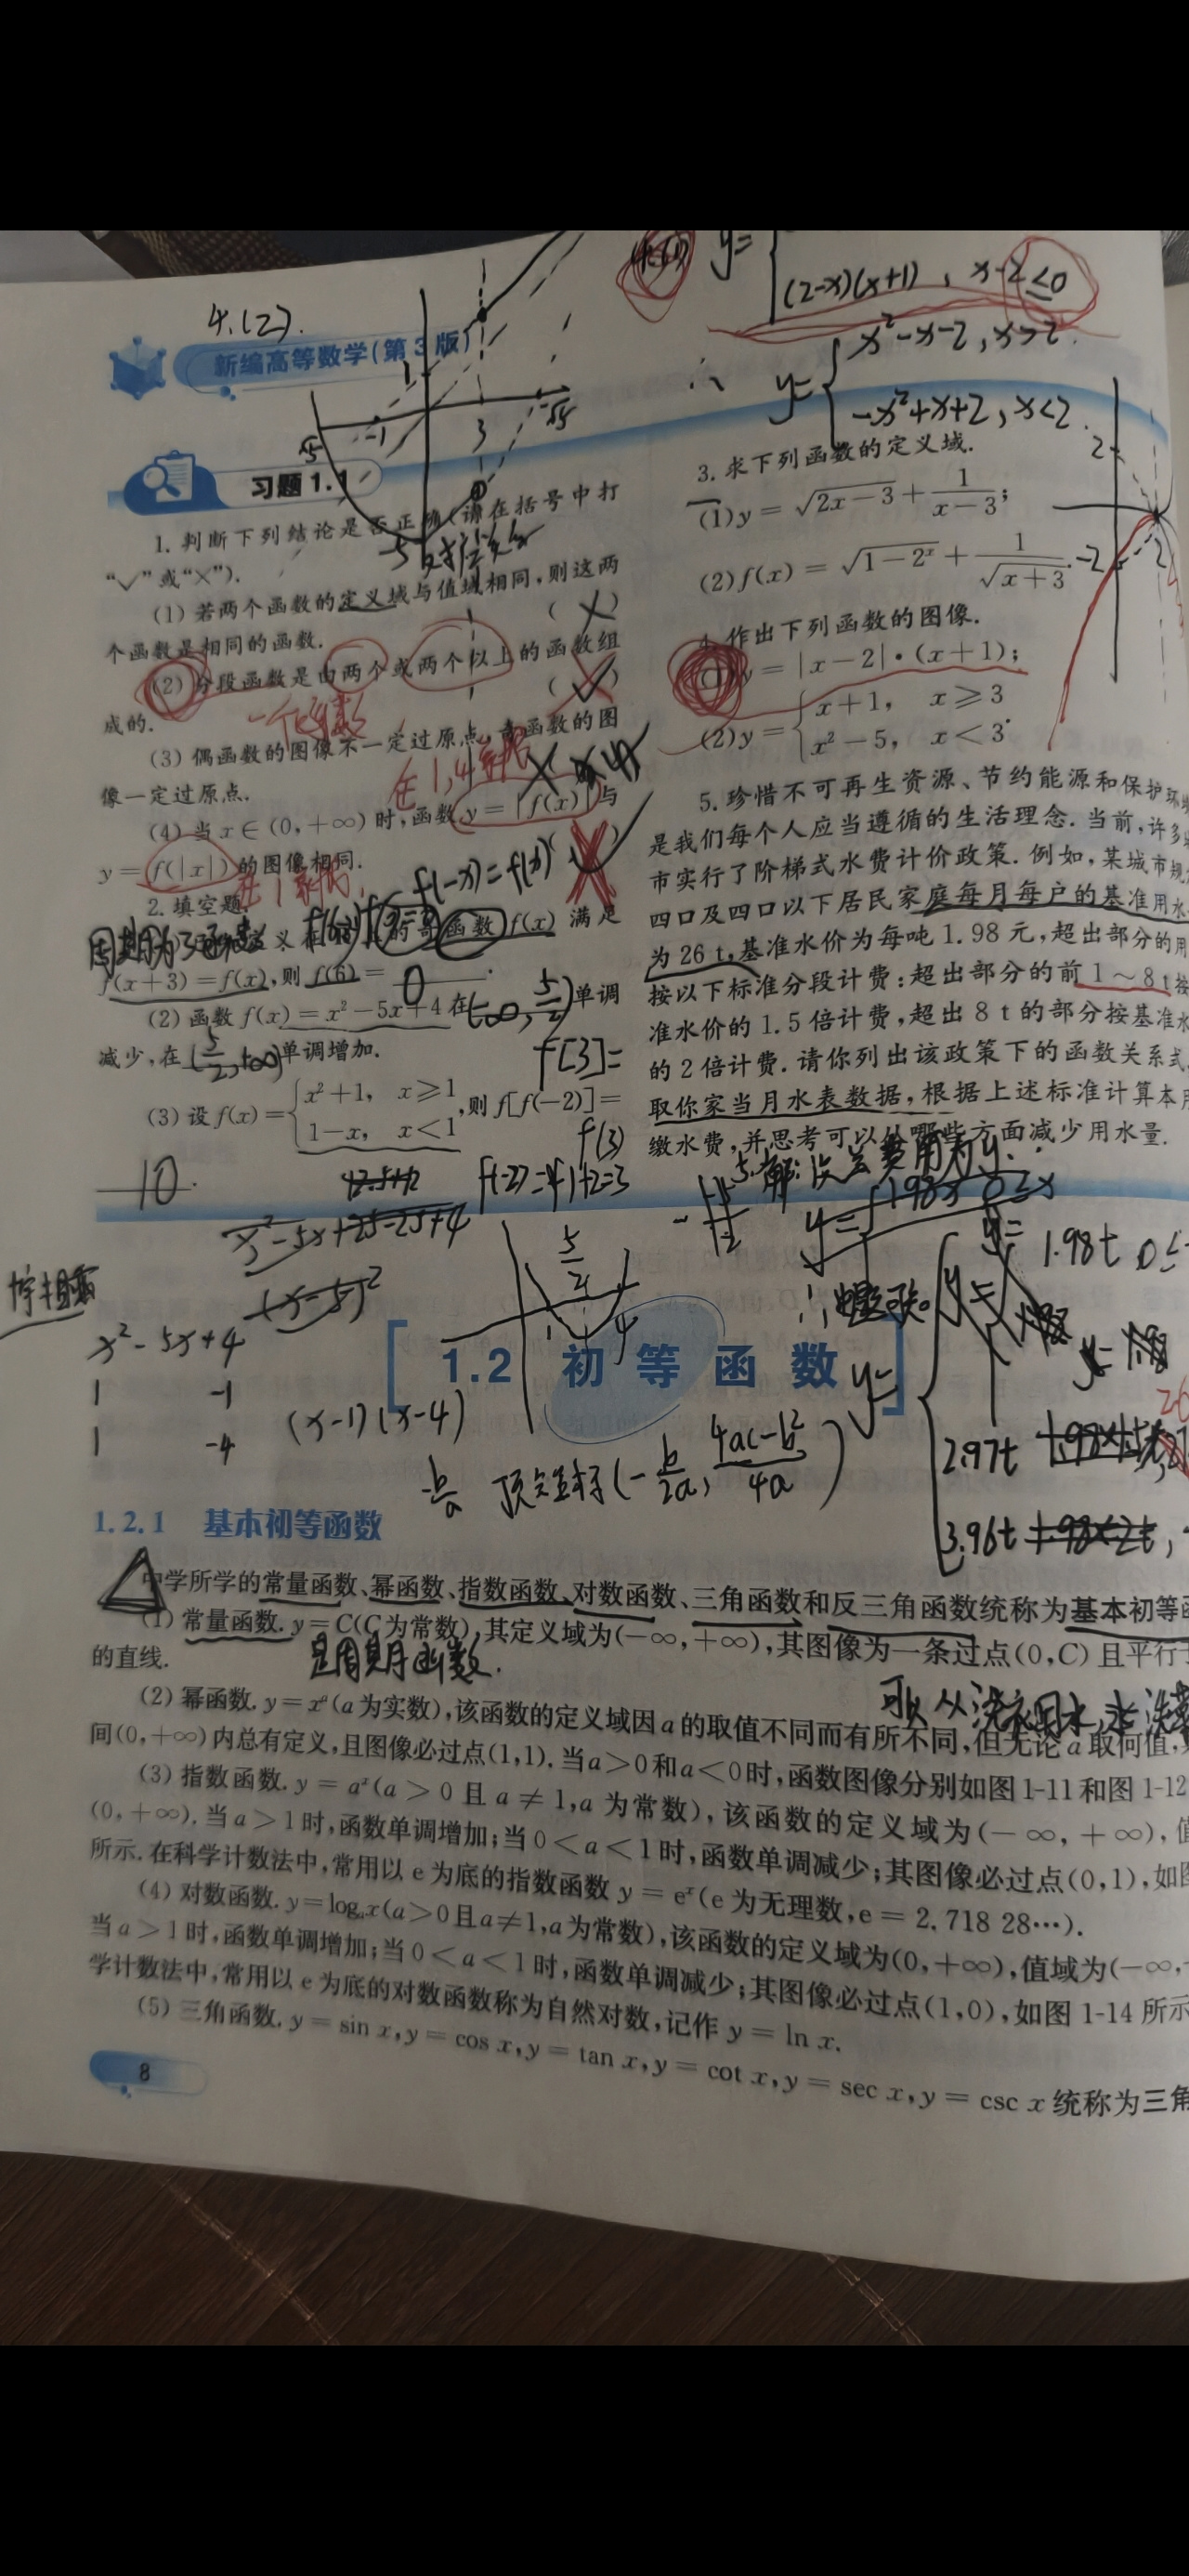 4.(2).
4.(1) y=
(2-x)(x+1), x-2≤0
新编高等数学(第3版)
x²-x-2, x>2.
∴ y=
-x²+x+2, x<2.
习题1.1
1. 判断下列结论是否正确(请在括号中打
“√”或“×”).
(1) 若两个函数的定义域与值域相同,则这两
个函数是相同的函数. (×)
(2) 分段函数是由两个或两个以上的函数组
成的. (√)
一个函数
(3) 偶函数的图像不一定过原点,奇函数的图
像一定过原点.
(4) 当 x∈(0,+∞) 时,函数 y=|f(x)| 与
y=f(|x|) 的图像相同.
f(-x)=f(x)
2. 填空题.
函数 f(x) 满足
f(x+3)=f(x),则 f(6)= 0 .
(2) 函数 f(x)=x²-5x+4 在(-∞,5/2)单调
减少,在(5/2,+∞)单调增加.
f[3]=
(3) 设 f(x)={x²+1, x≥1
1-x, x<1 ,则 f[f(-2)]=
f(3)
10.
3. 求下列函数的定义域.
(1) y=√(2x-3)+1/(x-3);
(2) f(x)=√(1-2ˣ)+1/√(x+3).
4. 作出下列函数的图像.
(1) y=|x-2|·(x+1);
(2) y={x+1, x≥3
x²-5, x<3.
5. 珍惜不可再生资源、节约能源和保护环境
是我们每个人应当遵循的生活理念. 当前,许多
市实行了阶梯式水费计价政策. 例如,某城市规
四口及四口以下居民家庭每月每户的基准用水
为 26 t,基准水价为每吨 1.98 元,超出部分的用
按以下标准分段计费:超出部分的前 1~8 t按
准水价的 1.5 倍计费,超出 8 t 的部分按基准水
的 2 倍计费. 请你列出该政策下的函数关系式,
取你家当月水表数据,根据上述标准计算本月
缴水费,并思考可以从哪些方面减少用水量.
5.解:设总费用为y.
x²-5x+25-25+4
(x-5)²
十字相乘
x²-5x+4
1 -1
1 -4
(x-1)(x-4)
5/2
顶点坐标(-b/2a, 4ac-b²/4a)
y=
1.98t 0≤
2.97t
3.96t
1.2 初等函数
1.2.1 基本初等函数
中学所学的常量函数、幂函数、指数函数、对数函数、三角函数和反三角函数统称为基本初等函
(1) 常量函数. y=C(C为常数),其定义域为(-∞,+∞),其图像为一条过点(0,C)且平行于
的直线.
是周期函数.
可以从洗衣用水,
(2) 幂函数. y=xᵃ(a为实数),该函数的定义域因a的取值不同而有所不同,但无论a取何值,
间(0,+∞)内总有定义,且图像必过点(1,1). 当a>0和a<0时,函数图像分别如图1-11和图1-12
(3) 指数函数. y=aˣ(a>0且a≠1,a为常数),该函数的定义域为(-∞,+∞),值
(0,+∞). 当a>1时,函数单调增加;当0<a<1时,函数单调减少;其图像必过点(0,1),如图
所示. 在科学计数法中,常用以e为底的指数函数 y=eˣ(e为无理数,e=2.718 28…).
(4) 对数函数. y=logₐx(a>0且a≠1,a为常数),该函数的定义域为(0,+∞),值域为(-∞,
当a>1时,函数单调增加;当0<a<1时,函数单调减少;其图像必过点(1,0),如图1-14所示
学计数法中,常用以e为底的对数函数称为自然对数,记作 y=ln x.
(5) 三角函数. y=sin x,y=cos x,y=tan x,y=cot x,y=sec x,y=csc x 统称为三角
8